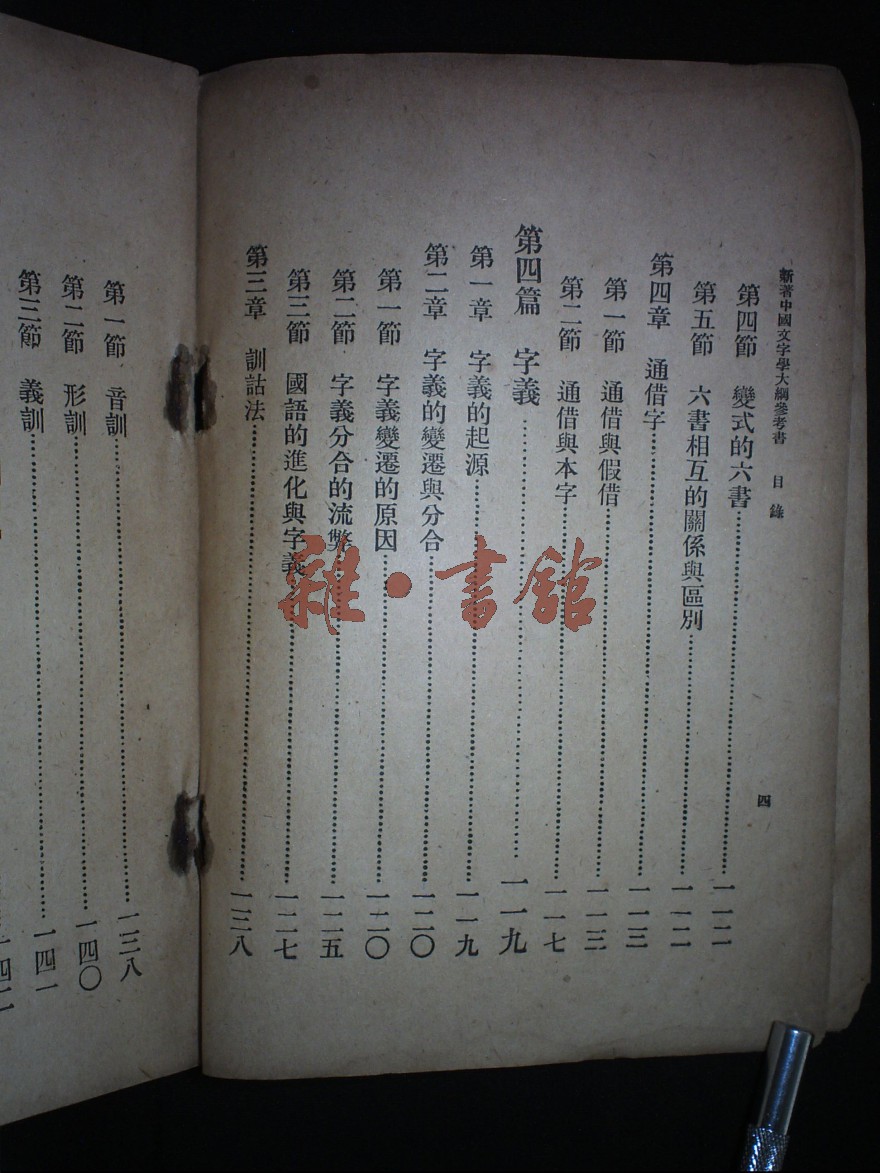 新著中國文字學大綱參考書 目錄 四
第四節 變式的六書 一一二
第五節 六書相互的關係與區別 一一二
第四章 通借字 一一三
第一節 通借與假借 一一三
第二節 通借與本字 一一七
第四篇 字義 一一九
第一章 字義的起源 一一九
第二章 字義的變遷與分合 一二〇
第一節 字義變遷的原因 一二〇
第二節 字義分合的流弊 一二五
第三節 國語的進化與字義 一二七
第三章 訓詁法 一三八
第一節 音訓 一三八
第二節 形訓 一四〇
第三節 義訓 一四一
一四二
雜·書館